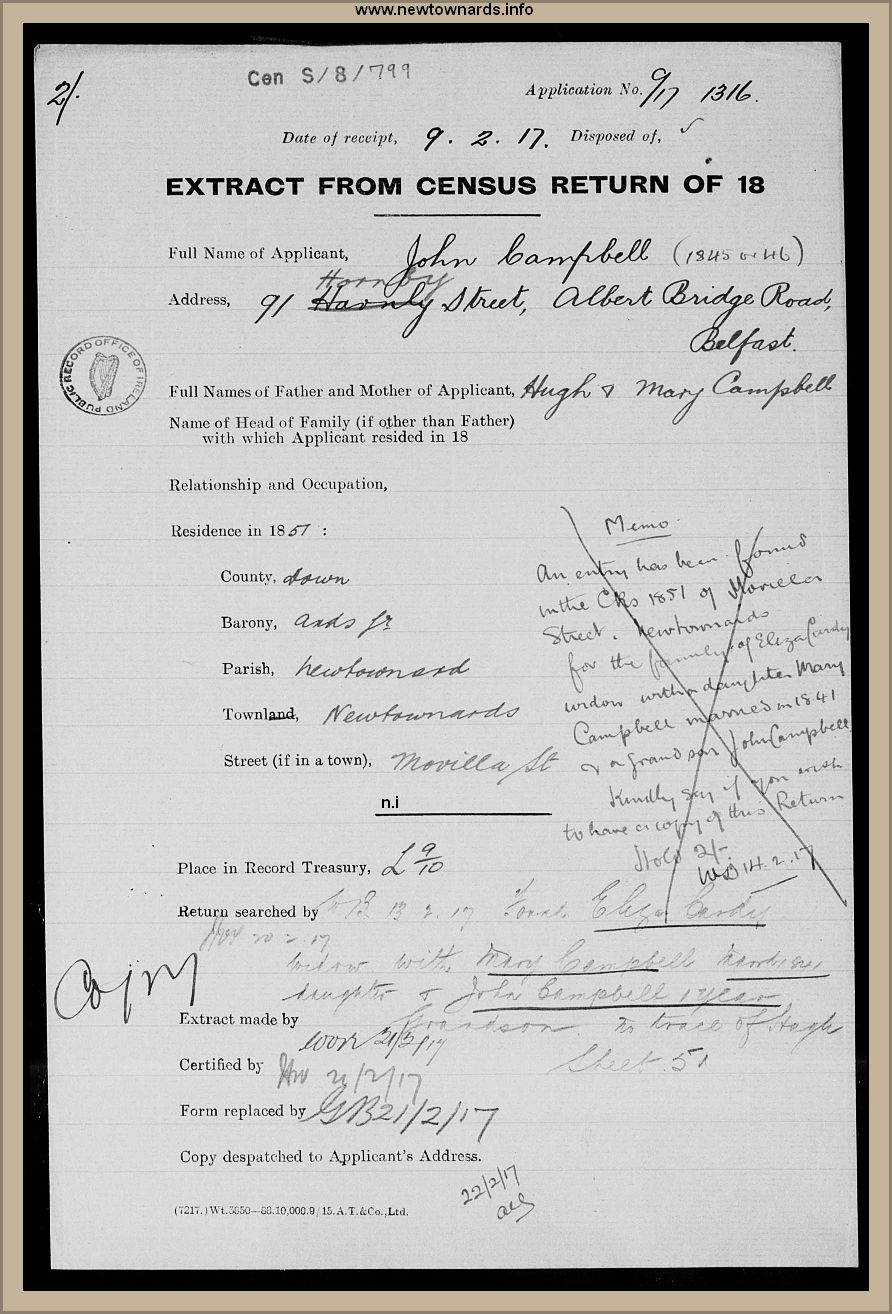 www.newtownards.info
2/.
Cen S/8/799
Application No. 9/17 1316.
Date of receipt, 9. 2. 17. Disposed of, ✓
EXTRACT FROM CENSUS RETURN OF 18
Full Name of Applicant, John Campbell (1845 or 46)
Hornby
Address, 91 Street, Albert Bridge Road,
Belfast.
PUBLIC RECORD OFFICE OF IRELAND
Full Names of Father and Mother of Applicant, Hugh & Mary Campbell
Name of Head of Family (if other than Father)
with which Applicant resided in 18
Relationship and Occupation,
Residence in 1851 :
County, down
Barony, Ards Lr
Parish, Newtownard
Townland, Newtownards
Street (if in a town), Movilla St
Memo
An entry has been found
in the CRs 1851 of Movilla
Street. Newtownards
for the family of Eliza Cardy
widow with a daughter Mary
Campbell married in 1841
& a grand son John Campbell
Kindly say if you wish
to have a copy of this Return
2/-.
14.2.17
n.i
Place in Record Treasury, L 9/10
Return searched by 13 2. 17 Found Eliza Cardy
20 2. 17
widow with Mary Campbell
daughter & John Campbell 1 year
Copy
Grandson. no trace of Hugh
Extract made by 21/2/17
Sheet 51
Certified by 21/2/17
Form replaced by GB 21/2/17
Copy despatched to Applicant's Address.
22/2/17
(7217.) Wt.5850—88.10,000.9/15. A.T.&Co.,Ltd.